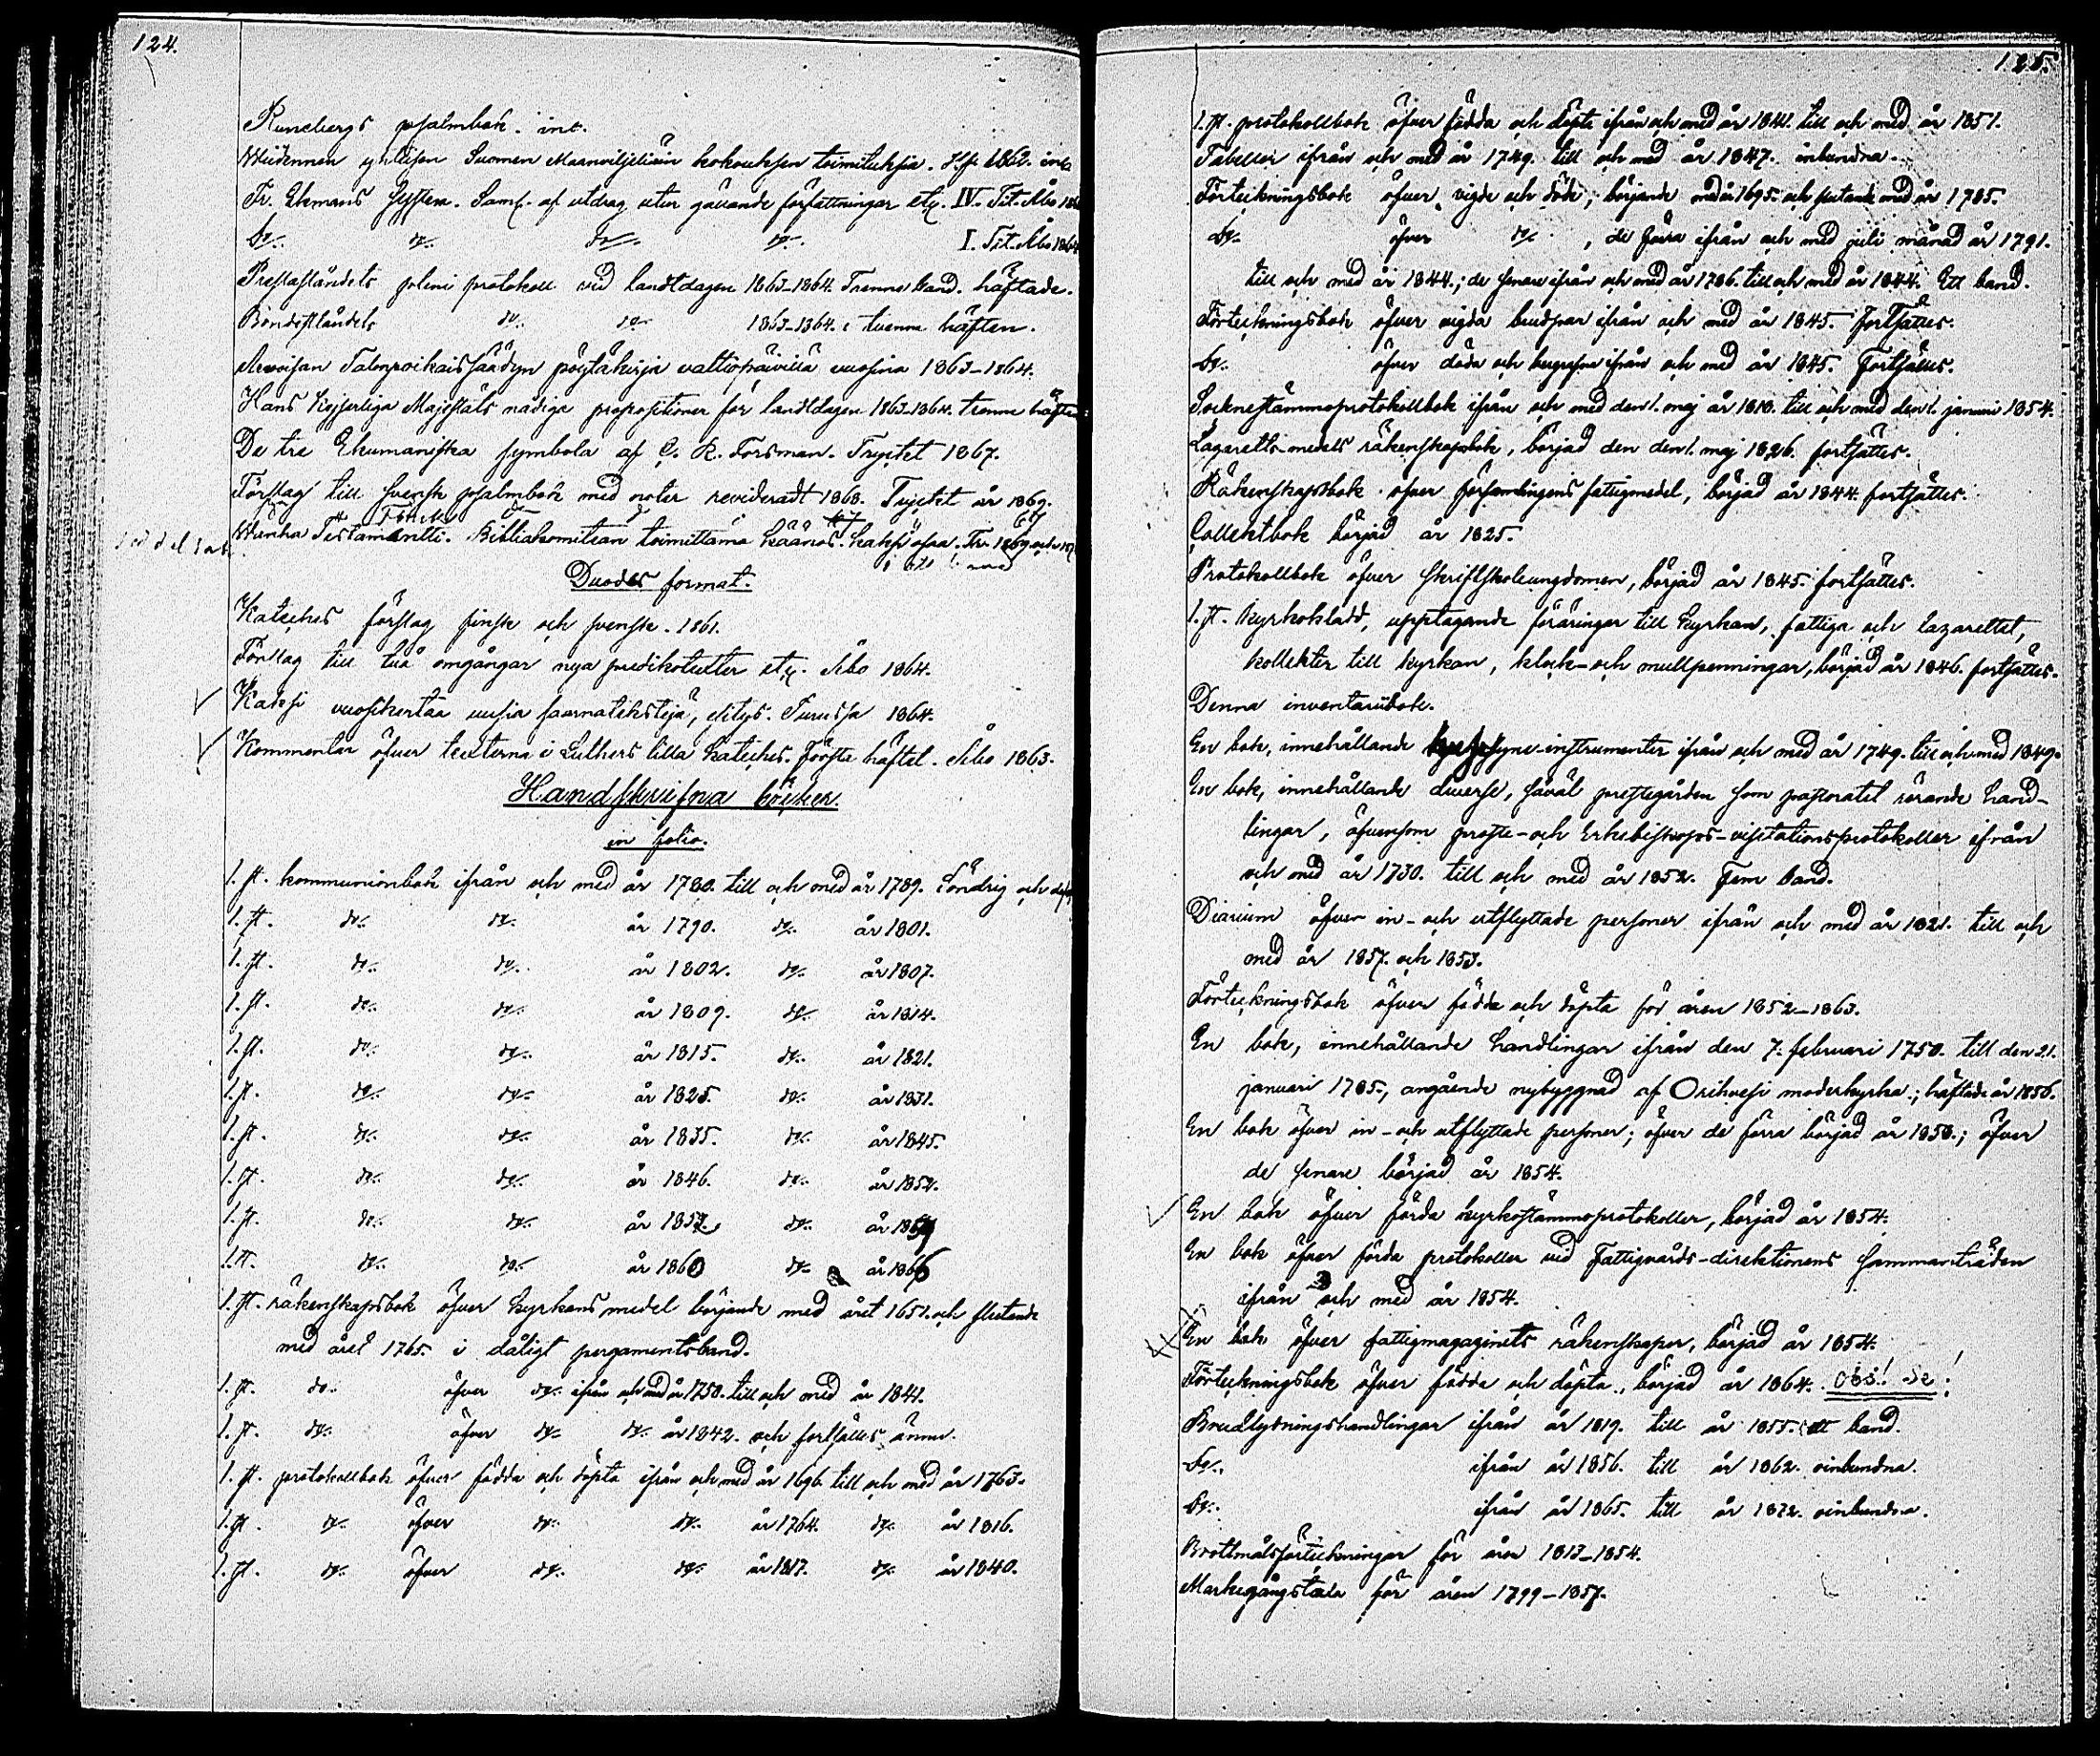 124.
Runebergs psalmbok. inb.
Weidennen yhteisen Suomen Maanviljeliäin kokouksen toimituksia. Hfs. 1862. inb.
Fr. Ekmans System. Saml. af utdrag utur gällande författningar etc. IV. Tit. Åbo
Do. do. do. do. I. Tit. Åbo 1864
Presteståndets pleni protokoll vid landtdagen 1863-1864. Trenne band. häftade.
Bondeståndets do. do. 1863-1864. i tvenne häften.
Arvoisan Talonpoikaissäädyn pöytäkirja valtiopäivillä vuosina 1863-1864.
Hans Kejserliga Majestäts nådiga propositioner för landtdagen 1863-1864. trenne häften
De tre Ekumaniska symbola af C. R. Forsman. Tryckt 1867.
Förslag till svensk psalmbok med noter revideradt 1868. Tryckt år 1869.
Wanha Testamentti. Bibliakomitean toimittama käännös. kaksi osaa. Tr. 1869
Duodes format.
Kateches förslag finsk och svensk. 1861.
Förslag till två omgångar nya predikotexter etc. Åbo 1864.
Kaksi vuosikertaa uusia saarnatekstejä, esitys. Turussa 1864.
Kommentar öfver texterna i Luthers lilla kateches. Första häftet. Åbo 1863.
Handskrifna böcker.
in folio.
1. st. kommunionbok ifrån och med år 1780. till och med år 1789. Söndrig och
1. st. do. do. år 1790. do. år 1801.
1. st. do. do. år 1802. do. år 1807.
1. st. do. do. år 1809. do. år 1814.
1. st. do. do. år 1815. do. år 1821.
1. st. do. do. år 1825. do. år 1831.
1. st. do. do. år 1835. do. år 1845.
1. st. do. do. år 1846. do. år 1852.
1. st. do. do. år 1852. do. år 1859
1. st. do. do. år 1860 do. år 1866
1. st. räkenskapsbok öfver kyrkans medel börjande med året 1651. och slutande
med året 1765. i dåligt pergamentsband.
1. st. do. öfver do. ifrån och med år 1750. till och med år 1841.
1. st. do. öfver do. do. år 1842. och fortsättes ännu.
1. st. protokollbok öfver födda och döpta ifrån och med år 1696. till och med år 1763.
1. st. do. öfver do. do. år 1764. do. år 1816.
1. st. do. öfver do. do. år 1817. do. år 1840.
125.
1. st. protokollbok öfver födda och döpta ifrån och med år 1841. till och med år 1851.
Tabeller ifrån och med år 1749. till och med år 1847. inbundna.
Förteckningsbok öfver vigde och döde; börjande med år 1695. och slutande med år 1785.
Do. öfver do., de förra ifrån och med juli månad år 1791.
till och med år 1844.; de senare ifrån och med år 1786. till och med år 1844. Ett band.
Förteckningsbok öfver vigda brudpar ifrån och med år 1845. Fortsättes.
Do. öfver döda och begrafna ifrån och med år 1845. Fortsättes.
Sockenstämmoprotokollbok ifrån och med den 1. maj år 1810. till och med den 1. januari 1854.
Lazaretts-medels räkenskapsbok, börjad den den 1. maj 1826. fortsättes.
Räkenskapsbok öfver församlingens fattigmedel, börjad år 1844. fortsättes.
Collektbok börjad år 1825.
Protokollbok öfver skriftskoleungdomen, börjad år 1845. fortsättes.
1. st. kyrkokladd, upptagande föräringar till kyrkan, fattiga och lazarettet,
kollekter till kyrkan, klock- och mullpenningar, börjad år 1846. fortsättes.
Denna inventariibok.
En bok, innehållande syne-instrumenter ifrån och med år 1749. till och med 1849.
En bok, innehållande diverse, såväl prestegården som pastoratet rörande hand-
lingar, äfvensom proste- och Erkebiskops-visitationsprotokoller ifrån
och med år 1730. till och med år 1852. Fem band.
Diarium öfver in- och utflyttade personer ifrån och med år 1821. till och
med år 1857. och 1853.
Förteckningsbok öfver födda och döpta för åren 1852-1863.
En bok, innehållande handlingar ifrån den 7. februari 1750. till den 21.
januari 1785., angående nybyggnad af Orihvesi moderkyrka.; häftade år 1856.
En bok öfver in- och utflyttade personer; öfver de förra börjad år 1858.; öfver
de senare börjad år 1854.
En bok öfver förda kyrkostämmoprotokoller, börjad år 1854.
En bok öfver förda protokoller vid Fattigvårds-direktionens sammanträden
ifrån och med år 1854.
En bok öfver fattigmagazinets räkenskaper, börjad år 1854.
Förteckningsbok öfver födda och döpta, börjad år 1864. Obs! se!
Brudlysningshandlingar ifrån år 1819. till år 1855. ett band.
Do. ifrån år 1856. till år 1862. oinbundna.
Do. ifrån år 1865. till år 1872. oinbundna.
Brottmålsförteckningar för åren 1813-1854.
Markegångstaxa för åren 1799-1857.